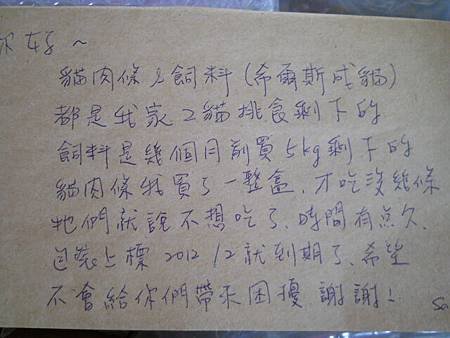 你好~
貓肉條&飼料(希爾斯成貓)
都是我家2貓挑食剩下的
飼料是幾個月前買5kg剩下的
貓肉條我買了一整盒,才吃沒幾條
牠們就說不想吃了、時間有點久、
包裝上標 2012/2就到期了、希望
不會給你們帶來困擾 謝謝!
Sa